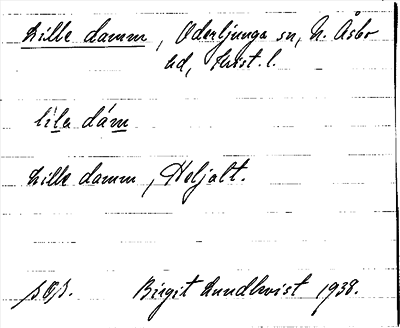 Lille damm, Oderljunga sn, N. Åsbo
hd, Krist. l.
lila dám
Lille damm, Heljalt.
Birgit Lundkvist 1938.